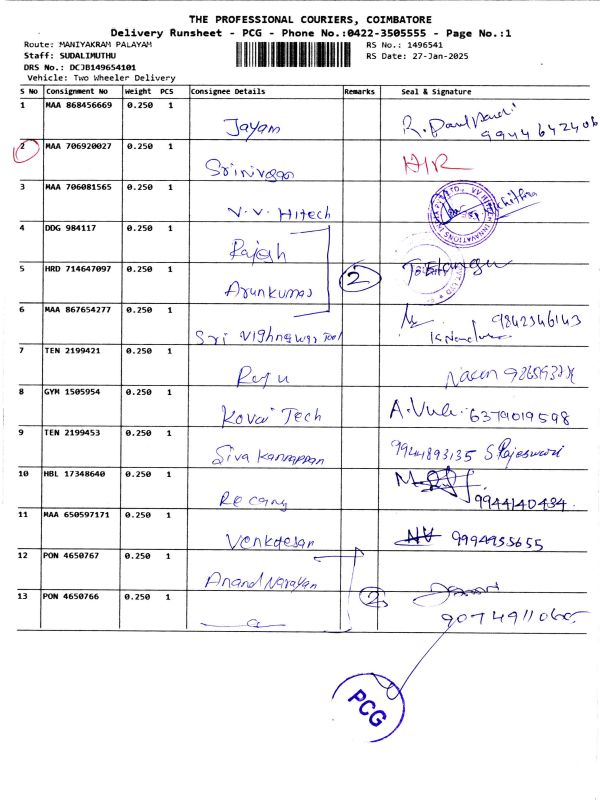 THE PROFESSIONAL COURIERS, COIMBATORE
Delivery Runsheet - PCG - Phone No.:0422-3505555 - Page No.:1
Route: MANIYAKRAM PALAYAM RS No.: 1496541
Staff: SUDALIMUTHU RS Date: 27-Jan-2025
DRS No.: DCJB149654101
Vehicle: Two Wheeler Delivery
S No Consignment No Weight PCS Consignee Details Remarks Seal & Signature
1 MAA 868456669 0.250 1 Jayam 9944642406
2 MAA 706920027 0.250 1 Srinivasan
3 MAA 706081565 0.250 1 V.V. Hitech
4 DDG 984117 0.250 1 Rajesh
5 HRD 714647097 0.250 1 Arunkumar 2
6 MAA 867654277 0.250 1 Sri Vighneswar Tool 9842346143
7 TEN 2199421 0.250 1 Raju
8 GYM 1505954 0.250 1 Kovai Tech 6379019598
9 TEN 2199453 0.250 1 Siva Kannappan 9944893135 S Rajeswari
10 HBL 17348640 0.250 1 9944140434
11 MAA 650597171 0.250 1 Venkdesan NV 9994955655
12 PON 4650767 0.250 1 Anand Narayan
13 PON 4650766 0.250 1 2
PCG